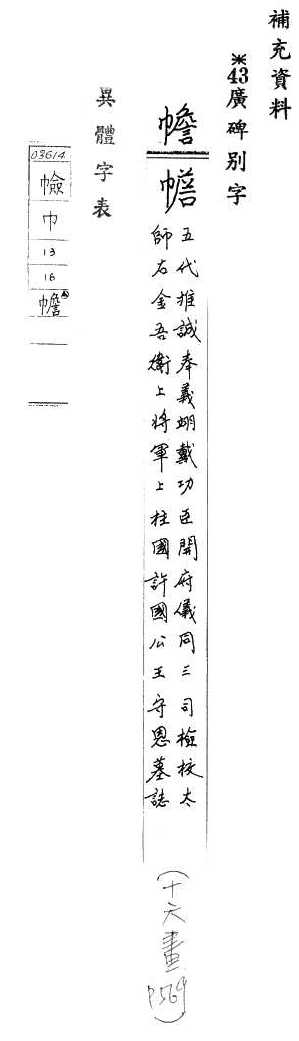 補充資料
※43廣碑別字
幨
五代推誠奉義翊戴功臣開府儀同三司檢校太
師右金吾衛上將軍上柱國許國公王守恩墓誌
(十六畫
P564)
異體字表
03614
憸
巾
13
16
幨